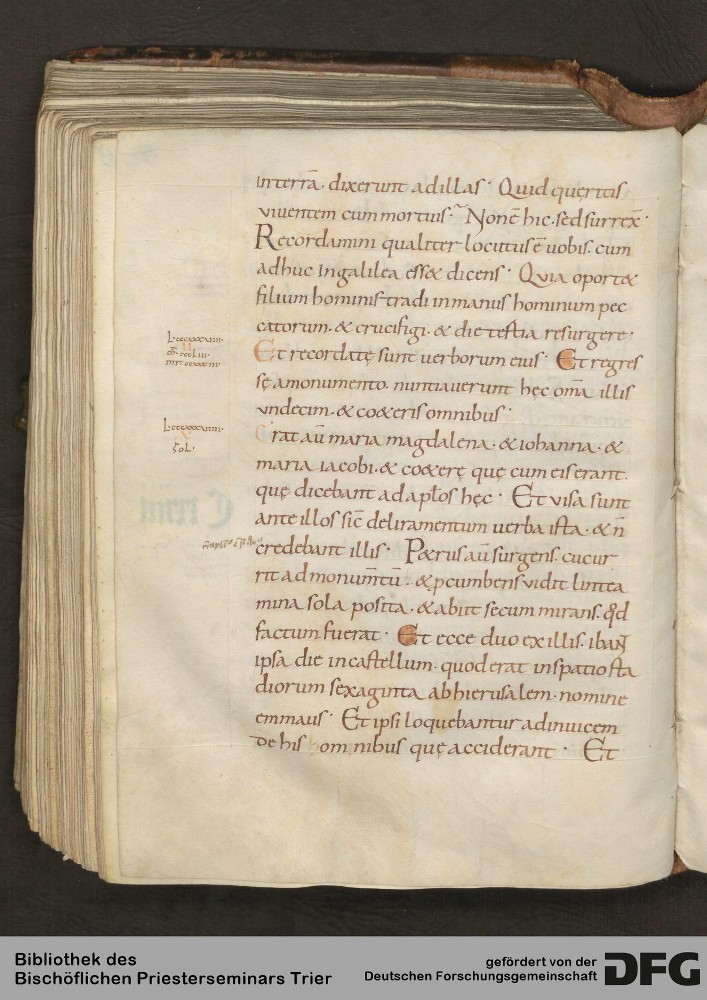 in terrã. dixerunt ad illas· Quid quęritis
viventem cum mortuis· Non ẽ hic. sed surrex̃·
Recordamini qualiter locutus ẽ uobis. cum
adhuc in galilea esset dicens· Quia oportet
filium hominis tradi in manus hominum pec
catorum. & crucifigi. & die tertia resurgere·
Et recordatę sunt uerborum eius· Et regres
sę a monumento. nuntiauerunt hęc om̃a illis
undecim. & coeteris omnibus·
Erat aũ maria magdalena. & iohanna. &
maria iacobi. & coeterę quę cum eis erant.
quę dicebant ad apl̃os hęc· Et visa sunt
ante illos sic̃ deliramentum uerba ista. & ñ
credebant illis· Petrus aũ surgens. cucur
rit ad monum̃tũ. & pcumbens vidit lintea
mina sola posita. & abiit secum mirans. qd̃
factum fuerat· Et ecce duo ex illis. ibant
ipsa die in castellum. quod erat in spatio sta
diorum sexaginta ab hierusalem. nomine
emmaus· Et ipsi loquebantur ad inuicem
de his omnibus quę acciderant· Et
Bibliothek des
Bischöflichen Priesterseminars Trier
gefördert von der
Deutschen Forschungsgemeinschaft
DFG